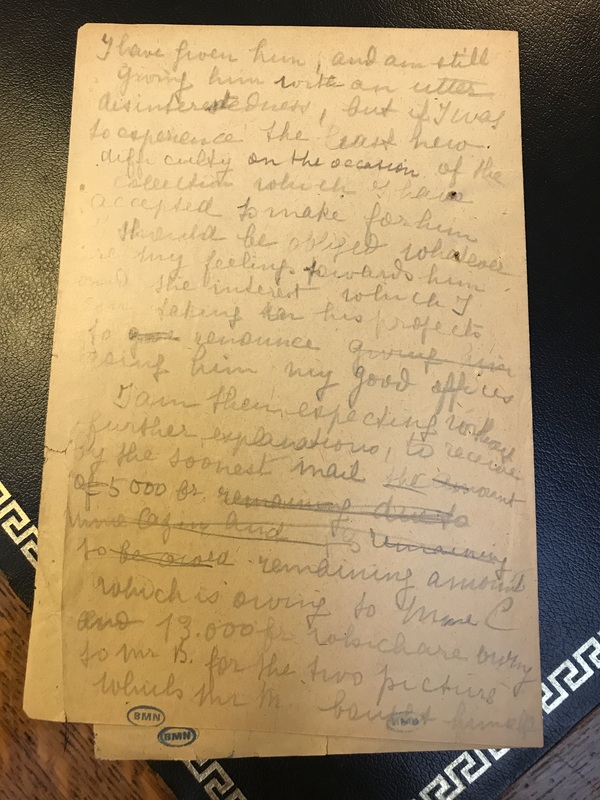 I have given him, and am still
giving him with an utter
disinterestedness, but if I was
to experience the least new
difficulty on the occasion of the
collection which I have
accepted to make for him
I should be obliged whatever
are my feelings towards him
and the interest which I
am taking in his projects
to give renounce giving him
him my good offices
I am then, expecting without
further explanations, to receive
by the soonest mail the amount
of 5 000 fr. remaining due to
Mme and remaining
to be remaining amount
which is owing to Mme C
and 13.000 fr which are owing
to Mr B. for the two picture
which Mr M bought himself
BMN
BMN
BMN